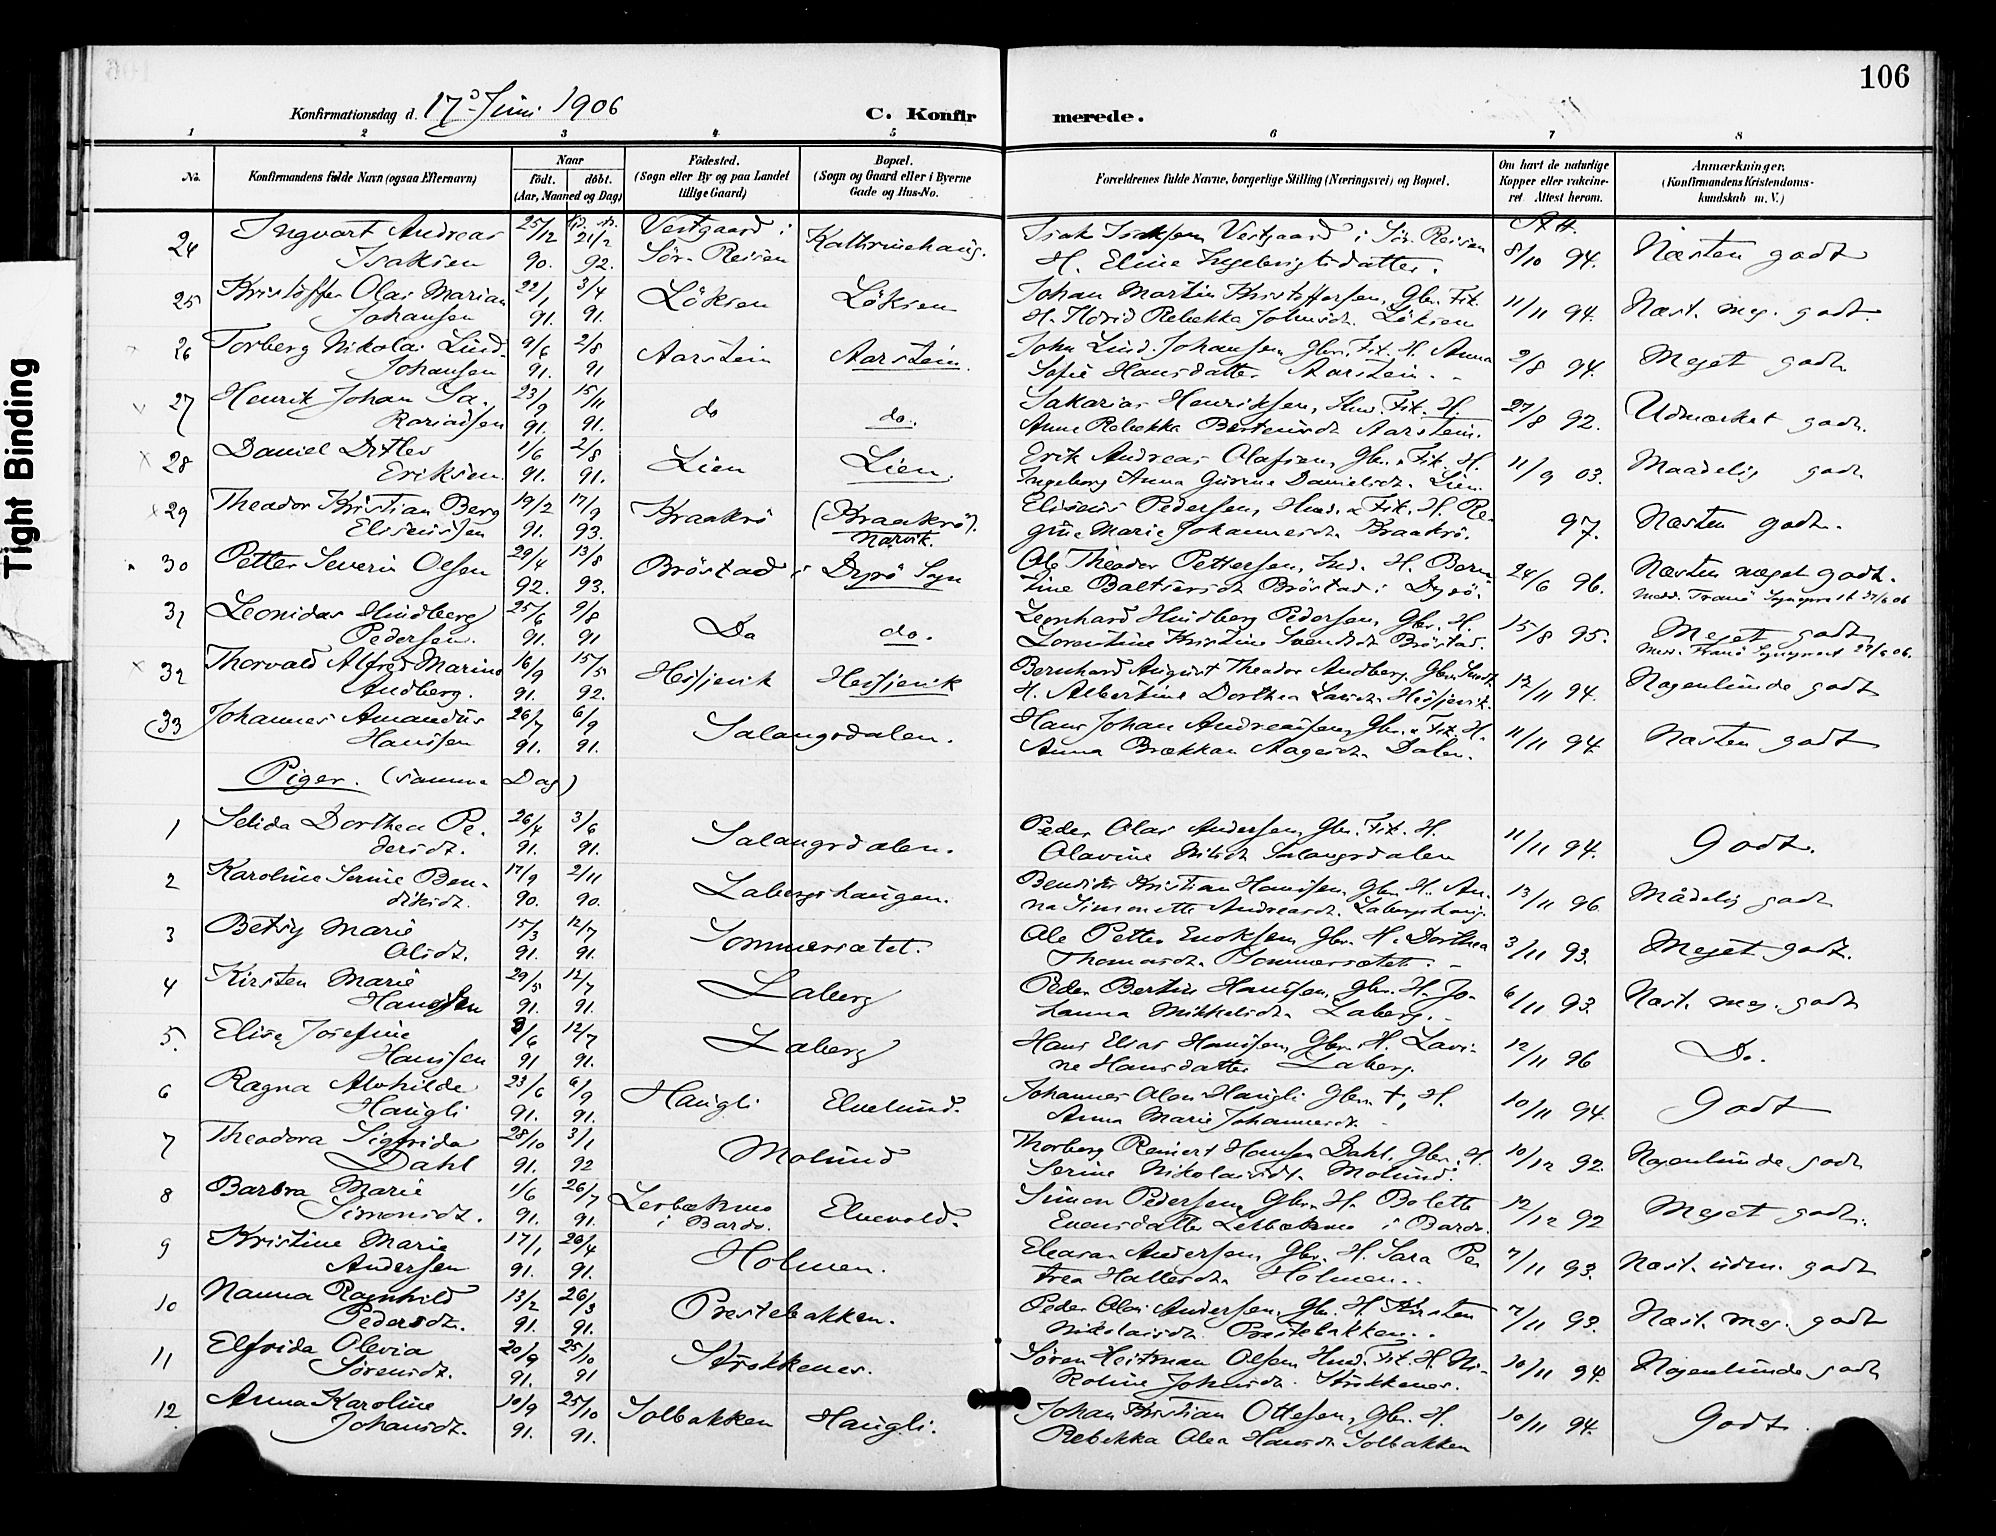 106
Konfirmationsdag d. 17de Juni 1906
C. Konfirmerede.
1 2 3 4 5 6 7 8
No.
Konfirmandens fulde Navn (ogsaa Efternavn)
Naar
født. døbt.
(Aar, Maaned og Dag)
Födested.
(Sogn eller By og paa Landet
tillige Gaard)
Bopæl.
(Sogn og Gaard eller i Byerne
Gade og Hus-No.
Forældrenes fulde Navne, borgerlige Stilling (Næringsvei) og Bopæl.
Om havt de naturlige
Kopper eller vakcine-
ret. Attest herom.
Anmærkninger.
(Konfirmandens Kristendoms-
kundskab m. V.)
24 Ingvart Andreas 25/12 21/2 Vestgaard i Kathrinehaug. Isak Isaksen Vestgaard i Sör-Reisen 8/10 94. Næsten godt
Isaksen 90. 92. Sör-Reisen H. Eline Ingebrigtsdatter.
25 Kristoffer Olai Marian 22/1 3/4 Löksen Löksen Johan Martin Kristoffersen, Gbr. Fik. 11/11 94. Næst. meg. godt.
Johansen 91. 91. H. Rebekka Johnsdt. Löksen
26 Torberg Nikolai Lind- 9/6 2/8 Aarstein Aarstein. John Lind-Johansen, Gbr. Fik. H. Anna 2/8 94. Meget godt.
Johansen 91. 91 Sofie Hansdatter Aarstein.
27 Henrik Johan Sa- 23/9 15/11 do do. Sakarias Henriksen, Hmd. Fik. H. 27/8 92. Udmærket godt.
kariassen 91. 91. Anne Rebekka Aarstein.
28 Daniel Ditlev 1/6 2/8 Lien Lien. Erik Andreas Olafsen, Gbr. & Fik. H. 11/9 03. Maadelig godt
Eriksen 91. 91. Ingeborg Anna Gurine Danielsdt. Lien.
29 Theodor Kristian Berg 19/2 17/9 Kraakrö (Kraakrö). Eliseus Pedersen, Hmd. & Fik. H. Re- 97. Næsten godt.
Eliseussen 91. 93. Narvik. gine Marie Johannesdt. Kraakrö.
30 Petter Severin Olsen 29/4 13/8 Bröstad i Dyrö Sogn Ole Theodor Pettersen, Ind. H. Bern- 24/6 96. Næsten meget godt.
92. 93. tine Baltsersdt. Bröstad i Dyrö. Medd. Tranö Sogneprest 27/6 06
31 Leonidas Hindberg 25/6 9/8 Do do. Leonhard Hindberg Pedersen, Gbr. H. 15/8 95. Meget godt
Pedersen. 91. 91 Lorentine Kristine Svendsdt. Bröstad. Med. Tranö Sogneprest 27/6 06.
32 Thorvald Alfred Marino 16/9 15/5 Hesjevik Hesjevik Bernhard August Theodor Andberg, Gbr. 12/11 94. Nogenlunde godt
Andberg. 91. 92. H. Albertine Dorthea Hesjevik.
33 Johannes Amandus 26/7 6/9 Salangsdalen. Hans Johan Andreassen, Gbr. & Fik. H. 11/11 94. Næsten godt
Hanssen 91. 91. Anna Brækkan Aagesdt. Dalen.
Piger. (samme Dag)
1 Selida Dorthea Pe- 26/4 3/6 Salangsdalen. Peder Olai Andersen, Gbr. Fik. H. 11/11 94. Godt.
dersdt. 91. 91. Olavine Nilsdt. Salangsdalen
2 Karoline Serine Ben- 17/9 2/11 Labergshaugen. Bendik Kristian Hanssen, Gbr. H. An- 13/11 96 Mådelig godt
diksdt. 90. 90. na Simonette Andreasdt. Labergshaug.
3 Betsy Marie 15/3 12/7 Sommersætet. Ole Petter Enoksen, Gbr. H. Dorthea 3/11 93. Meget godt.
Olsdt. 91. 91. Thomasdt. Sommersætet.
4 Kirsten Marie 29/5 12/7 Laberg Peder Bertin Hanssen, Gbr. H. Jo- 6/11 93. Næst. meg. godt
Hanssen 91. 91. hanna Mikkelsdt. Laberg.
5. Elise Josefine 8/6 12/7 Laberg Hans Elias Hanssen, Gbr. H. Lavi- 12/11 96 Do.
Hanssen 91 91. ne Hansdatter Laberg.
6 Ragna Alvhilde 23/6 6/9 Haugli Elvelund. Johannes Olsen Haugli Gbr. †, H. 10/11 94. Godt
Haugli 91. 91. Anna Marie Johannesdt.
7 Theodora Sigfrida 28/10 3/1 Molund Thorberg Reinert Hansen Dahl, Gbr. H. 10/12 92. Nogenlunde godt
Dahl 91. 92 Serine Nikolaisdt. Molund.
8 Barbra Marie 1/6 26/7 Leobækmo Elvevold. Simon Pedersen, Gbr. H. Bolette 12/12 92 Meget godt.
Simonsdt. 91. 91. i Bardo. Evensdatter i Bardo.
9 Kristine Marie 17/1 20/4 Holmen. Eleasar Andersen, Gbr. H. Sara Pe- 7/11 93. Næst. udm. godt
Andersen 91. 91. trea Hallesdt. Holmen.
10 Nanna Ragnhild 13/2 26/3 Prestebakken. Peder Olai Andersen, Gbr. H. Kirsten 7/11 93. Næst. meg. godt
Pedersdt. 91. 91. Nikolaisdt. Prestebakken.
11 Elfrida Olevia 20/9 25/10 Strokkenes. Søren Heitman Olsen Hmd. Fik. H. Ni- 10/11 94. Nogenlunde godt
Sørensdt. 91. 91 koline Johnsdt. Strokkenes.
12 Anna Karoline 10/9 25/10 Solbakken Haugli. Johan Kristian Ottesen, Gbr. H. 10/11 94. Godt.
Johansdt. 91. 91. Rebekka Olea Hansdt. Solbakken
Tight Binding